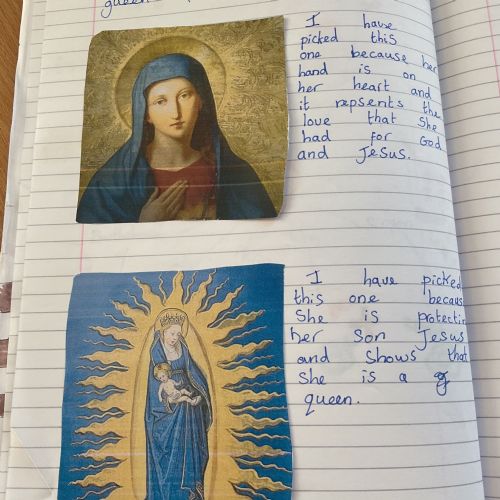 queen
I have
picked this
one because her
hand is on
her heart and
it repsents the
love that She
had for God
and Jesus.
I have picked
this one becaus
She is protectin
her son Jesus
and Shows that
She is a
queen.